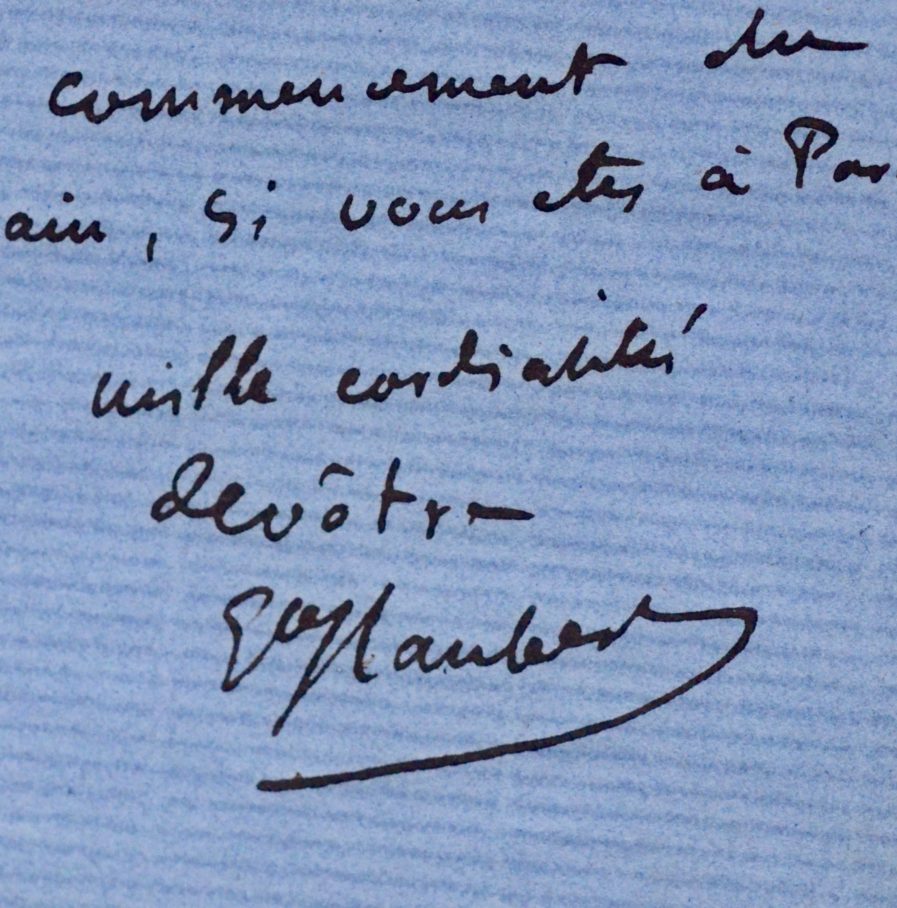 commencement du
ain, si vous etes à Par
mille cordialités
devôtre
Gve Flaubert